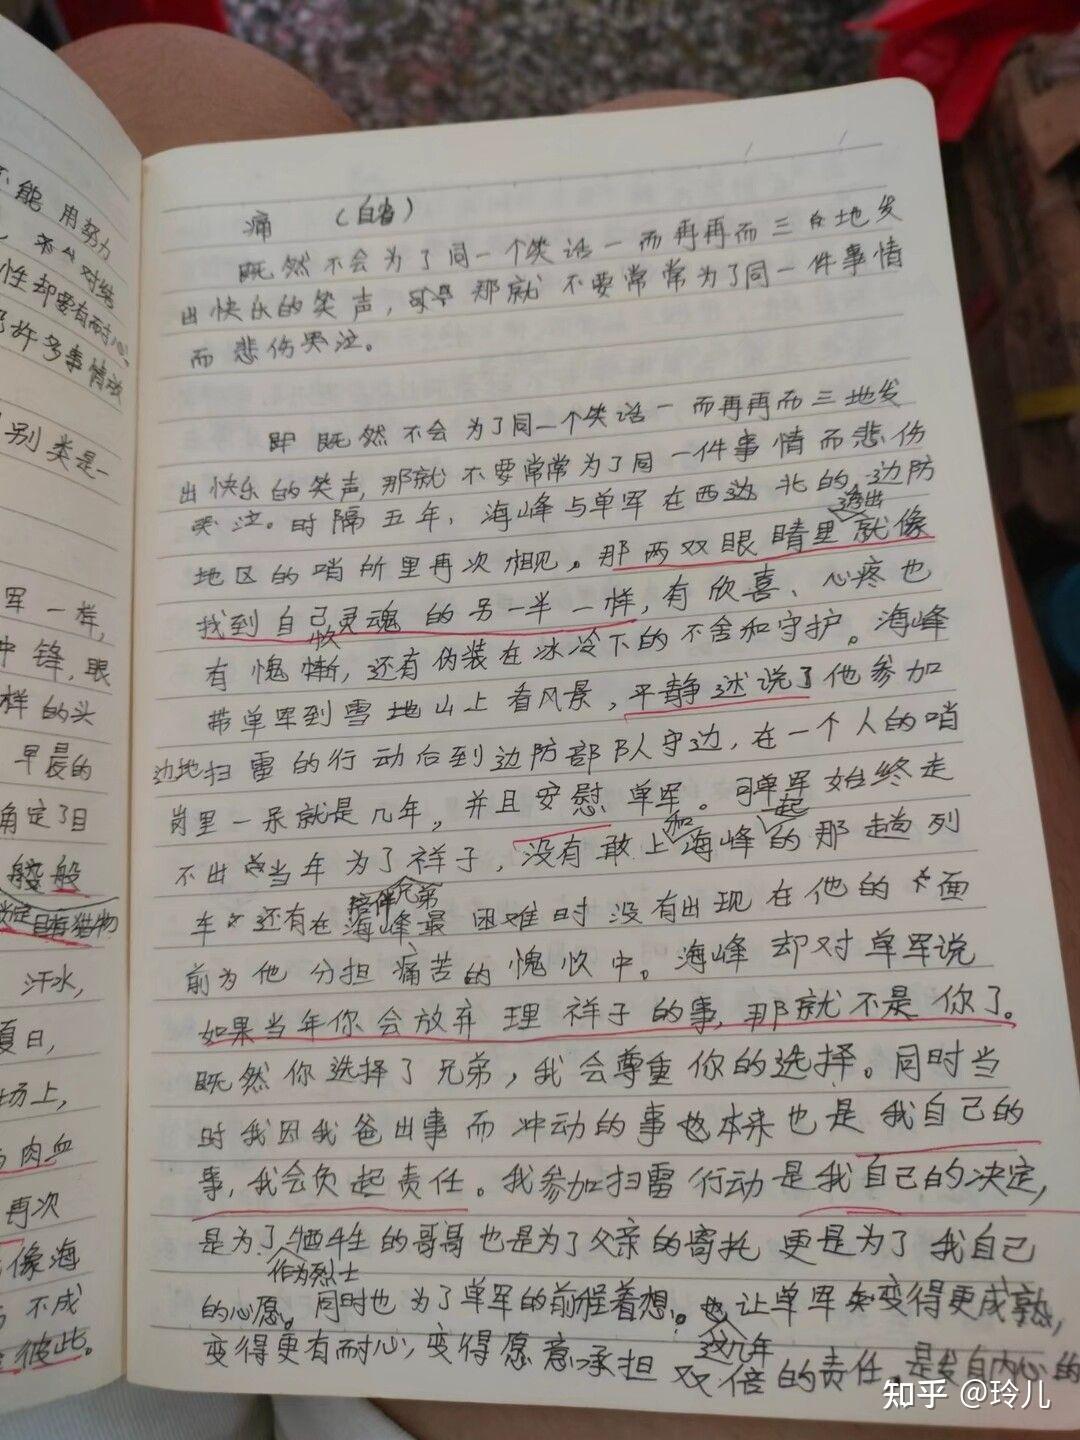 不能 用努力
对结
性却要有耐心,
许多事情动
别类是一
军 一样,
锋,眼
样的头
早晨的
确定了目
般
目标猎物
汗水,
夏日,
场上,
肉血
再次
像海
不成
彼此。
痛 (自省)
既然不会为了同一个笑话一而再再而三的地发
出快乐的笑声, 那就不要常常为了同一件事情
而悲伤哭泣。
即 既然不会为了同一个笑话一而再再而三地发
出快乐的笑声,那就不要常常为了同一件事情而悲伤
哭泣。时隔五年,海峰与单军在西边北的边防
透出
地区的哨所里再次相见。那两双眼睛里就像
找到自己灵魂的另一半一样,有欣喜、心疼也
疚
有愧惭,还有伪装在冰冷下的不舍和守护。海峰
带单军到雪地山上看风景,平静述说了他参加
边地扫雷的行动后到边防部队守边,在一个人的哨
岗里一呆就是几年,并且安慰单军。可单军始终走
和 起
不出当年为了祥子,没有敢上海峰的那趟列
陪伴兄弟
车 还有在海峰最困难时没有出现在他的面
前为他分担痛苦的愧疚中。海峰却对单军说
如果当年你会放弃理祥子的事,那就不是你了。
既然你选择了兄弟,我会尊重你的选择。同时当
时我因我爸出事而冲动的事也本来也是我自己的
事,我会负起责任。我参加扫雷行动是我自己的决定,
是为了牺牲的哥哥也是为了父亲的寄托更是为了我自己
作为烈士
的心愿。同时也为了单军的前程着想。也让单军变得更成熟,
这几年
变得更有耐心,变得愿意承担双倍的责任。是发自内心的
知乎 @玲儿